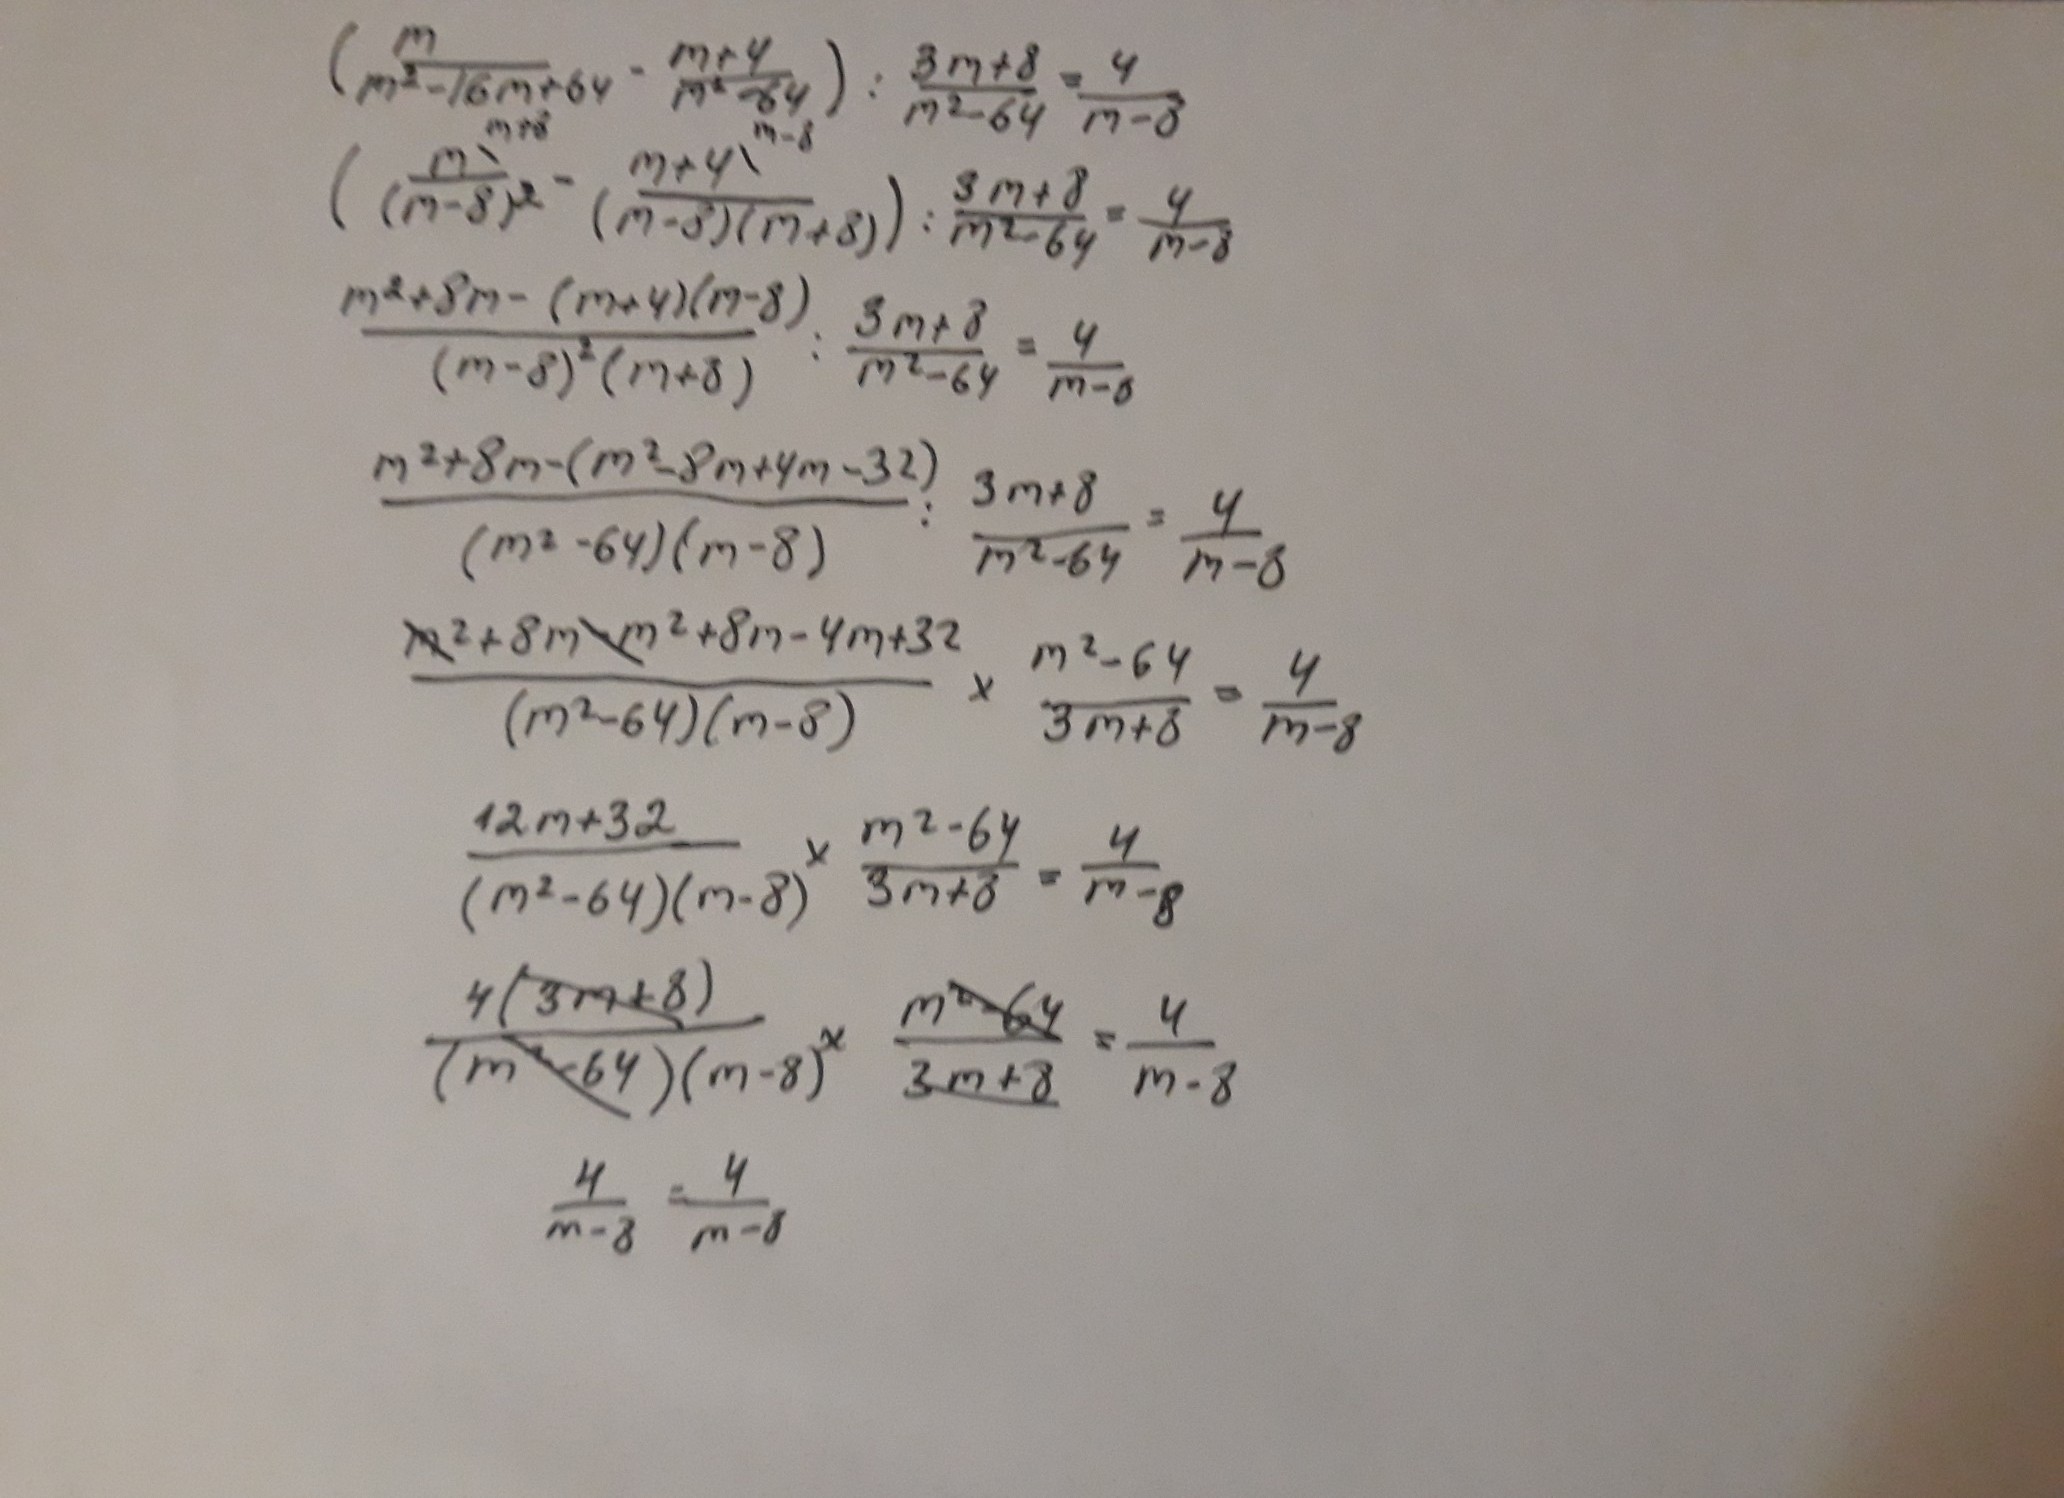 (m/(m²-16m+64) - (m+4)/(m²-64)) : (3m+8)/(m²-64) = 4/(m-8)
m+8 m-8
(m\/(m-8)² - (m+4)\/((m-8)(m+8))) : (3m+8)/(m²-64) = 4/(m-8)
(m²+8m-(m+4)(m-8))/((m-8)²(m+8)) : (3m+8)/(m²-64) = 4/(m-8)
(m²+8m-(m²-8m+4m-32))/((m²-64)(m-8)) : (3m+8)/(m²-64) = 4/(m-8)
(m²+8m-m²+8m-4m+32)/((m²-64)(m-8)) × (m²-64)/(3m+8) = 4/(m-8)
(12m+32)/((m²-64)(m-8)) × (m²-64)/(3m+8) = 4/(m-8)
4(3m+8)/((m²-64)(m-8)) × (m²-64)/(3m+8) = 4/(m-8)
4/(m-8) = 4/(m-8)